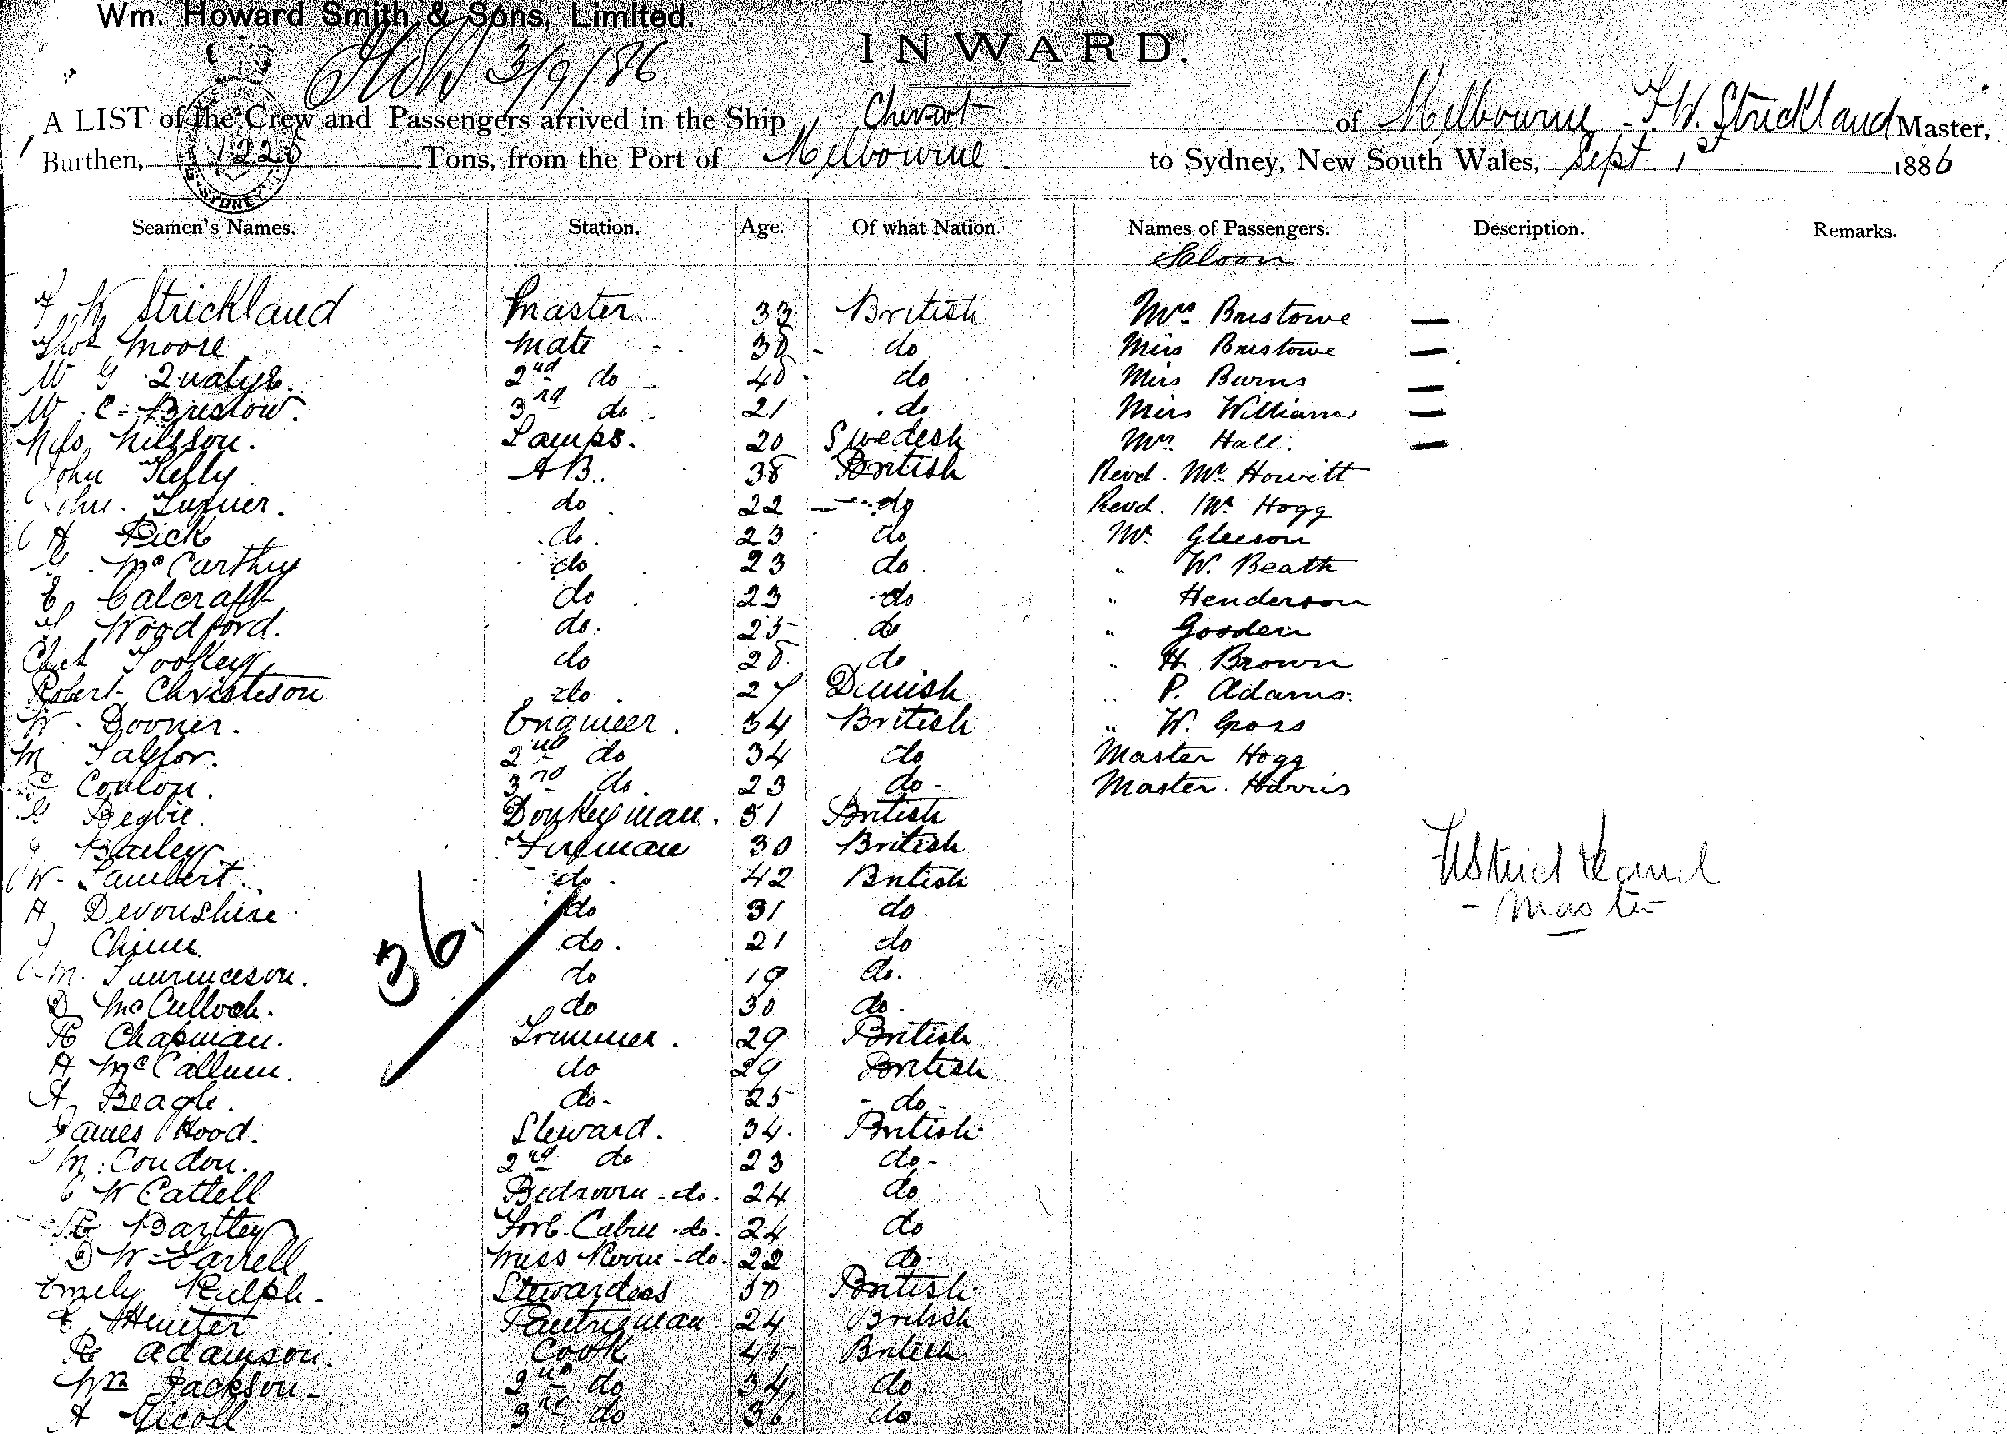 Wm. Howard Smith & Sons, Limited.
INWARD.
3/9/86
A LIST of the Crew and Passengers arrived in the Ship Cheviot of Melbourne F. W. Strickland Master,
Burthen, 1226 Tons, from the Port of Melbourne to Sydney, New South Wales, Sept 1st 1886
Seamen's Names. Station. Age. Of what Nation. Names of Passengers. Description. Remarks.
Saloon
F W Strickland Master 33 British Mrs Bristowe —
Thos Moore Mate 38 do Miss Bristowe —
W G 2nd do 40 do Miss Burns —
W. C. Bristow. 3rd do 21 do Miss Williams —
Nils Nilsson. Lamps. 20 Swedish Mrs Hall. —
John Kelly A B. 38 British Revd. Mr Howitt
John Turner. do 22 do Revd. Mr Hogg
A Pick do. 23 do Mr Gleeson
McCarthy do 23 do. " W. Beath
E Calcraft do 23 do " Henderson
Woodford. do. 25 do " Gooden
Chas Tookey do 28 do " H. Brown
Robert Christeson do 27 Danish " P. Adams.
W. Dooner. Engineer. 34 British " W. Gross
M Taylor. 2nd do 34 do Master Hogg
Coulon. 3rd do 23 do Master Harris
Begbie. Donkeyman. 51 British
Bailey Fireman 30 British
W. Lambert do. 42 British
F W Strickland
A Devonshire do 31 do
Master
Chinn do. 21 do
M. Laurenceson. do 19 do.
36
D McCulloch. do 30 do
Chapman. Trimmer. 29 British
A McCallum. do 29 British
A Beagle. do 25 do
James Hood. Steward. 34 British
M. Condon. 2nd do 23 do
C W Cattell Bedroom do. 24 do
Bartley Fore Cabin do. 24 do
W Farrell Mess Room do. 22 do
Emely Ralph Stewardess 50 British
E Hunter Pantryman 24 British
R Adamson. Cook 45 British
Wm Jackson 2nd do 34 do
A Nicoll 3rd do 36 do